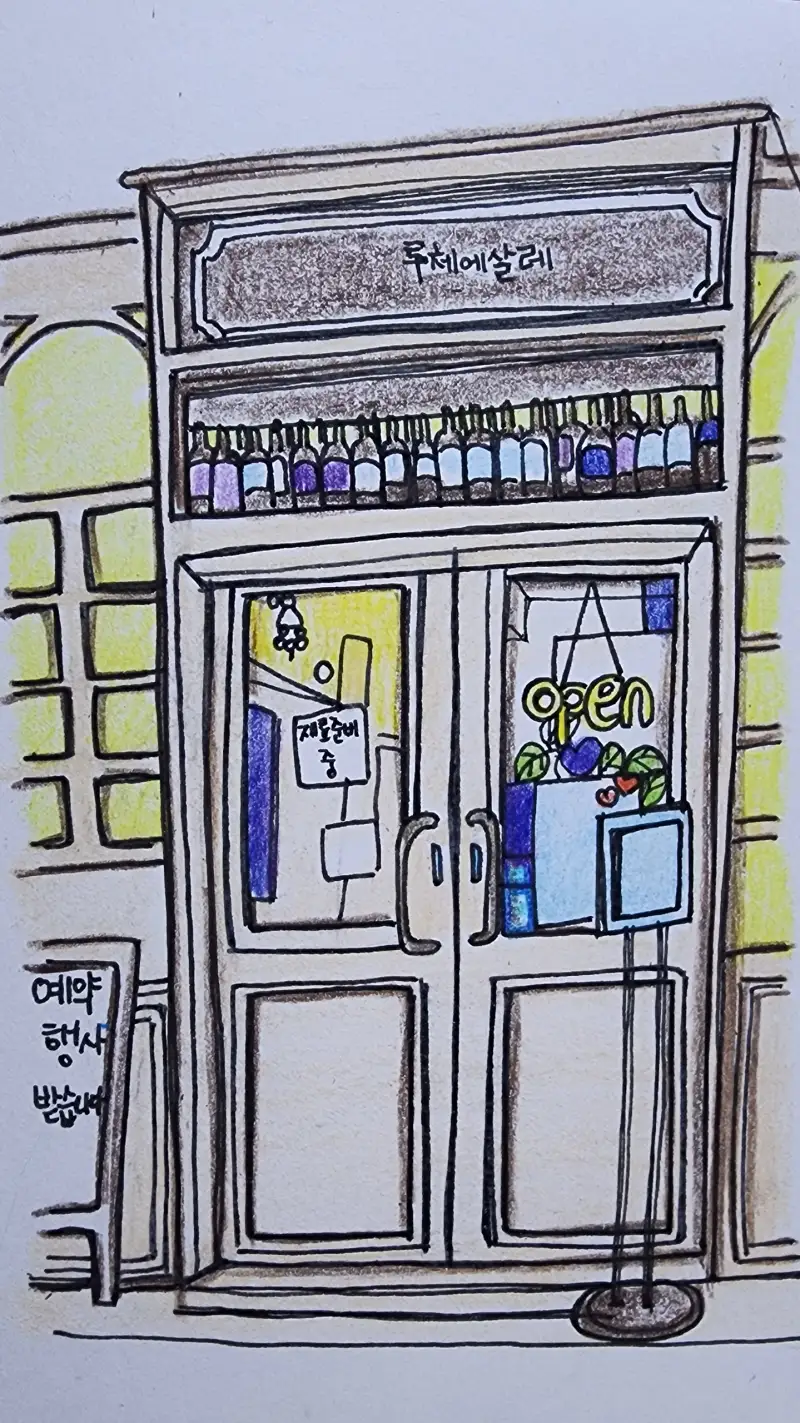 루체에살레
재료준비
중
open
예약
행사
받습니다